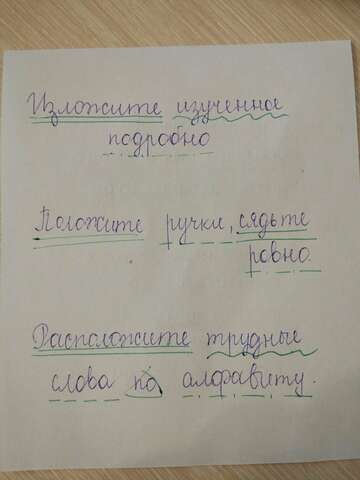 Изложите изученное
подробно
Положите ручки, сядьте
ровно.
Расположите трудные
слова по алфавиту.